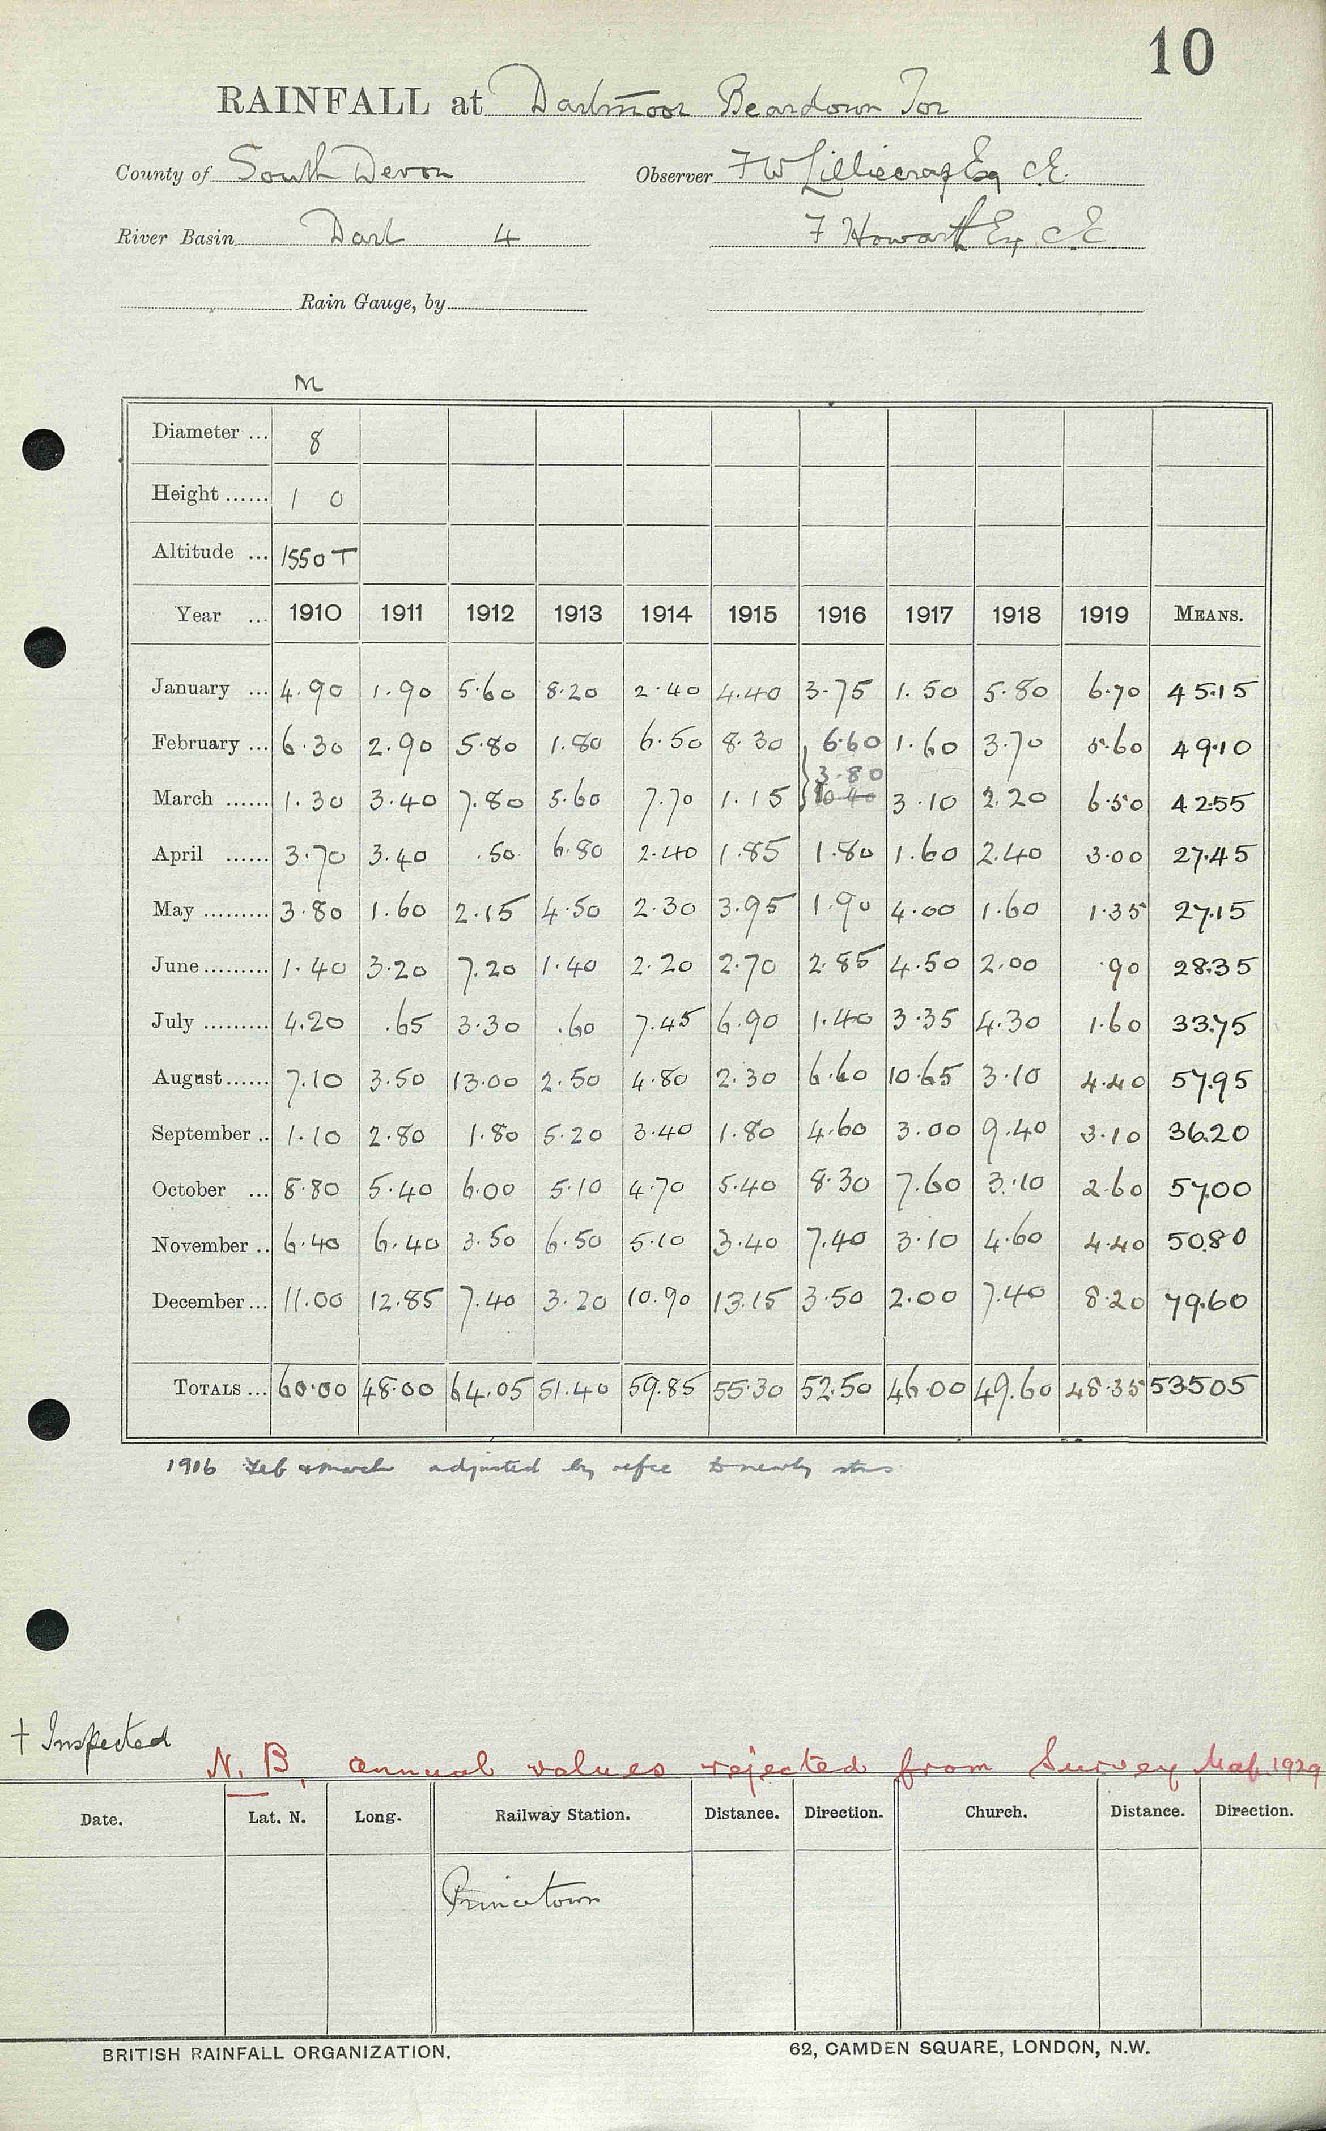 10
RAINFALL at Dartmoor Beardown Tor
County of South Devon Observer F W Lilliecrap Esq C.E.
River Basin Dart 4 F Howarth Esq C E
Rain Gauge, by
M
Diameter ... 8
Height ...... 1 0
Altitude ... 1550 T
Year ... 1910 1911 1912 1913 1914 1915 1916 1917 1918 1919 MEANS.
January ... 4.90 1.90 5.60 8.20 2.40 4.40 3.75 1.50 5.80 6.70 45.15
February ... 6.30 2.90 5.80 1.80 6.50 8.30 6.60 1.60 3.70 5.60 49.10
3.80
March ...... 1.30 3.40 7.80 5.60 7.70 1.15 10.40 3.10 2.20 6.50 42.55
April ...... 3.70 3.40 .50 6.80 2.40 1.85 1.80 1.60 2.40 3.00 27.45
May ......... 3.80 1.60 2.15 4.50 2.30 3.95 1.90 4.00 1.60 1.35 27.15
June ......... 1.40 3.20 7.20 1.40 2.20 2.70 2.85 4.50 2.00 .90 28.35
July ......... 4.20 .65 3.30 .60 7.45 6.90 1.40 3.35 4.30 1.60 33.75
August ...... 7.10 3.50 13.00 2.50 4.80 2.30 6.60 10.65 3.10 4.40 57.95
September .. 1.10 2.80 1.80 5.20 3.40 1.80 4.60 3.00 9.40 3.10 36.20
October ... 8.80 5.40 6.00 5.10 4.70 5.40 8.30 7.60 3.10 2.60 57.00
November .. 6.40 6.40 3.50 6.50 5.10 3.40 7.40 3.10 4.60 4.40 50.80
December ... 11.00 12.85 7.40 3.20 10.90 13.15 3.50 2.00 7.40 8.20 79.60
TOTALS ... 60.00 48.00 64.05 51.40 59.85 55.30 52.50 46.00 49.60 48.35 535.05
1916 Feb & March adjusted by refce to nearby stns
† Inspected
N.B. annual values rejected from Survey Maf. 1929
Date. Lat. N. Long. Railway Station. Distance. Direction. Church. Distance. Direction.
Princetown
BRITISH RAINFALL ORGANIZATION. 62, CAMDEN SQUARE, LONDON, N.W.